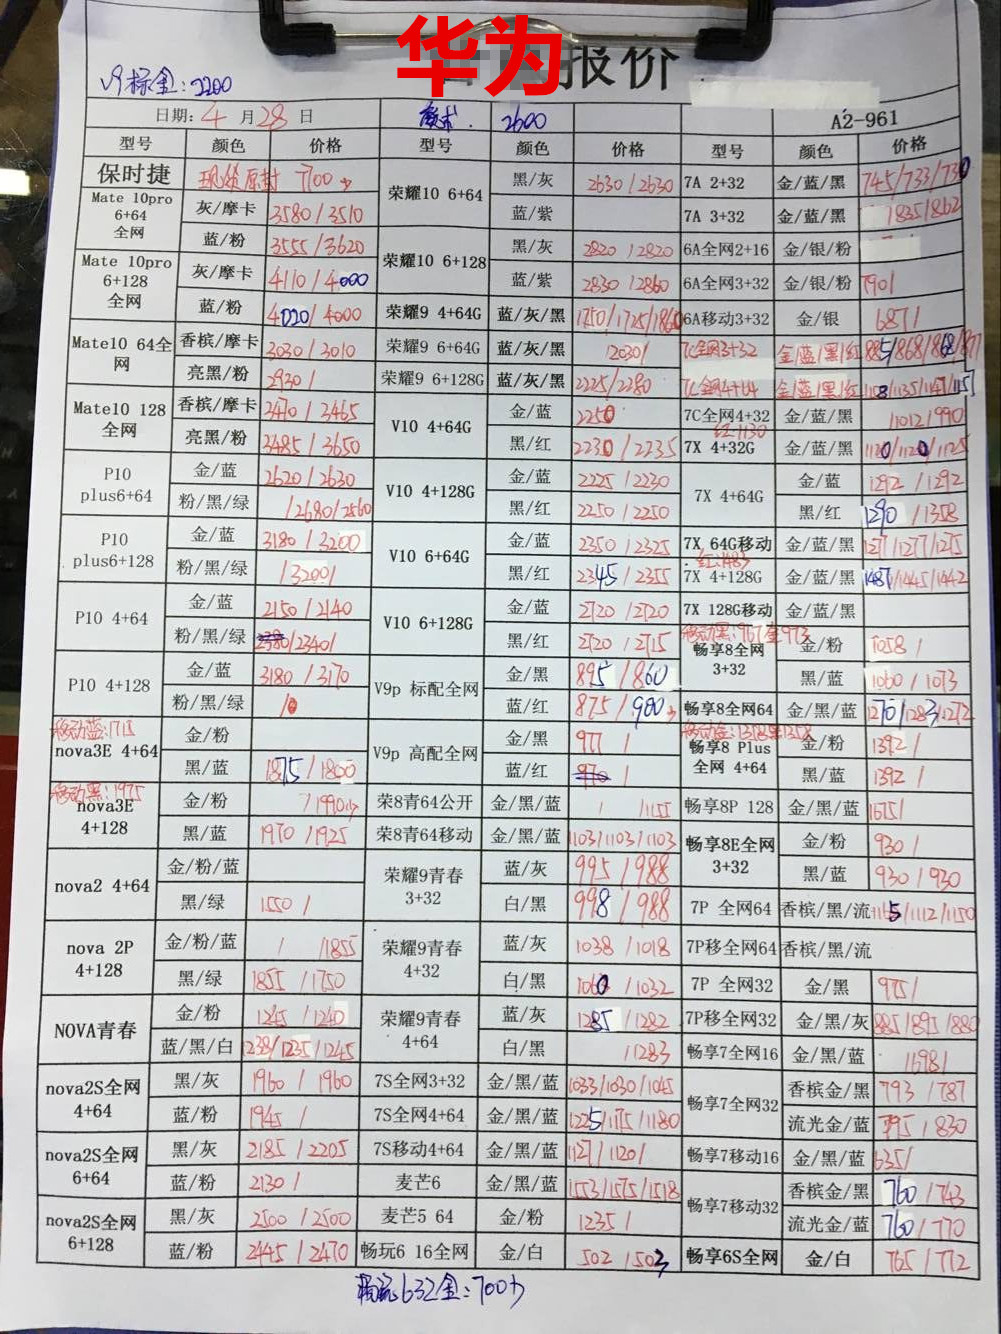 华为
报价
V9标金:2200
日期: 4 月 28 日
2600
A2-961
型号 颜色 价格 型号 颜色 价格 型号 颜色 价格
保时捷 现货原封 7100
Mate 10pro 6+64 全网 灰/摩卡 3580 / 3510
蓝/粉 3555 / 3620
Mate 10pro 6+128 全网 灰/摩卡 4110 / 4000
蓝/粉 4020 / 4000
Mate10 64全网 香槟/摩卡 3030 / 3010
亮黑/粉 2930 /
Mate10 128 全网 香槟/摩卡 3470 / 3465
亮黑/粉 3485 / 3650
P10 plus6+64 金/蓝 2620 / 2630
粉/黑/绿 / 2680 / 2560
P10 plus6+128 金/蓝 3180 / 3200
粉/黑/绿 / 3200 /
P10 4+64 金/蓝 2150 / 2140
粉/黑/绿 2380 / 2340 /
P10 4+128 金/蓝 3180 / 3170
粉/黑/绿
移动蓝:1715
nova3E 4+64 金/粉
黑/蓝 1875 / 1800
移动黑:1975
nova3E 4+128 金/粉 / 1990
黑/蓝 1970 / 1925
nova2 4+64 金/粉/蓝
黑/绿 1550 /
nova 2P 4+128 金/粉/蓝 / / 1855
黑/绿 1855 / 1750
NOVA青春 金/粉 1245 / 1240
蓝/黑/白 1238 / 1235 / 1245
nova2S全网 4+64 黑/灰 1960 / 1960
蓝/粉 1945 /
nova2S全网 6+64 黑/灰 2185 / 2205
蓝/粉 2130 /
nova2S全网 6+128 黑/灰 2500 / 2500
蓝/粉 2445 / 2470
荣耀10 6+64 黑/灰 2630 / 2630
蓝/紫
荣耀10 6+128 黑/灰 2820 / 2820
蓝/紫 2830 / 2860
荣耀9 4+64G 蓝/灰/黑 1750 / 1725 / 1860
荣耀9 6+64G 蓝/灰/黑 / 2030 /
荣耀9 6+128G 蓝/灰/黑 2225 / 2280
V10 4+64G 金/蓝 2250
黑/红 2230 / 2235
V10 4+128G 金/蓝 2225 / 2230
黑/红 2250 / 2250
V10 6+64G 金/蓝 2350 / 2325
黑/红 2345 / 2355
V10 6+128G 金/蓝 2720 / 2720
黑/红 2720 / 2715
V9p 标配全网 金/黑 895 / 860
蓝/红 875 / 900
V9p 高配全网 金/黑 977 /
蓝/红 970 /
荣8青64公开 金/黑/蓝 / / 1155
荣8青64移动 金/黑/蓝 1103 / 1103 / 1103
荣耀9青春 3+32 蓝/灰 995 / 988
白/黑 998 / 988
荣耀9青春 4+32 蓝/灰 1038 / 1018
白/黑 1060 / 1032
荣耀9青春 4+64 蓝/灰 1285 / 1282
白/黑 / 1283
7S全网3+32 金/黑/蓝 1033 / 1030 / 1045
7S全网4+64 金/黑/蓝 1225 / 1175 / 1180
7S移动4+64 金/黑/蓝 1127 / 1120 /
麦芒6 金/黑/蓝 1553 / 1575 / 1518
麦芒5 64 金/粉 1235 /
畅玩6 16全网 金/白 502 / 503
7A 2+32 金/蓝/黑 745 / 733 / 730
7A 3+32 金/蓝/黑 / 835 / 862
6A全网2+16 金/银/粉
6A全网3+32 金/银/粉 790 /
6A移动3+32 金/银 687 /
7C全网3+32 金/蓝/黑/红 885 / 868 / 868 / 877
7C全网4+64 金/蓝/黑/红 1158 / 1135 / 1147 / 1157
7C全网4+32 金/蓝/黑 / 1012 / 990
红:1130
7X 4+32G 金/蓝/黑 1120 / 1120 / 1125
7X 4+64G 金/蓝 1292 / 1292
黑/红 1290 / 1358
7X 64G移动 金/蓝/黑 1277 / 1277 / 1275
红:1483
7X 4+128G 金/蓝/黑 1487 / 1445 / 1442
7X 128G移动 金/蓝/黑
移动黑:967 金973
畅享8全网 3+32 金/粉 1058 /
黑/蓝 1060 / 1073
畅享8全网64 金/黑/蓝 1270 / 1283 / 1272
移动蓝:1358 黑1358
畅享8 Plus 全网 4+64 金/粉 1392 /
黑/蓝 1392 /
畅享8P 128 1675 /
畅享8E全网 3+32 金/粉 930 /
黑/蓝 930 / 930
7P 全网64 香槟/黑/流 1165 / 1112 / 1150
7P移全网64 香槟/黑/流
7P 全网32 金/黑 975 /
7P移全网32 金/黑/灰 885 / 895 / 880
畅享7全网16 金/黑/蓝 / 698 /
畅享7全网32 香槟金/黑 793 / 787
流光金/蓝 795 / 830
畅享7移动16 金/黑/蓝 635 /
畅享7移动32 香槟金/黑 760 / 743
流光金/蓝 760 / 770
畅享6S全网 金/白 765 / 772
畅玩632金:700